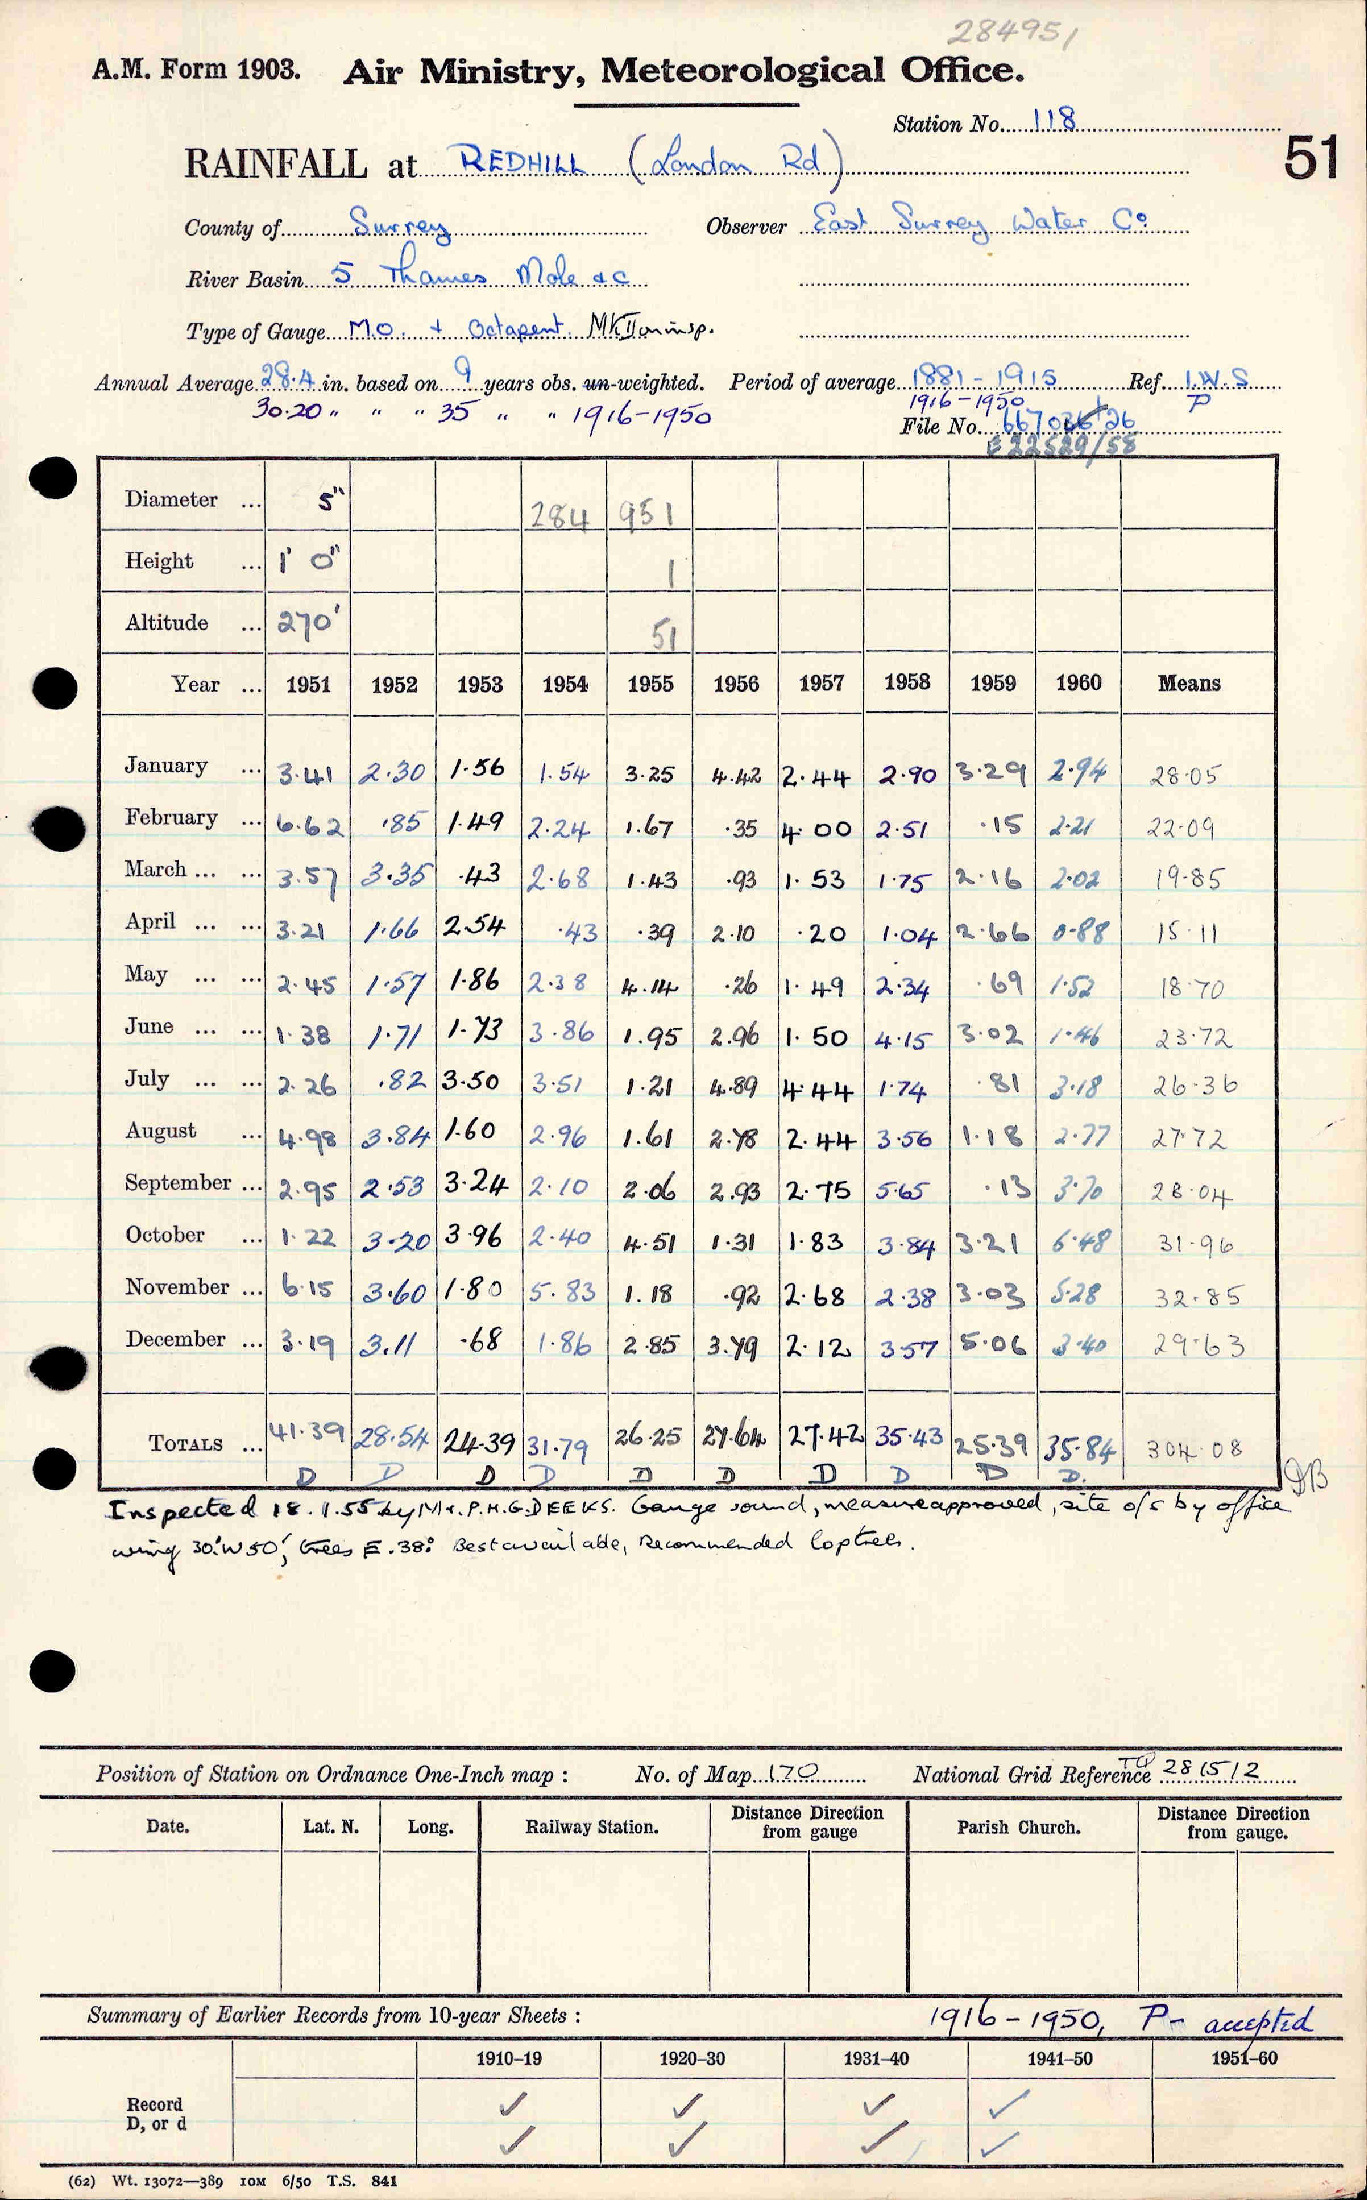 284951
A.M. Form 1903. Air Ministry, Meteorological Office.
Station No. 118
51
RAINFALL at REDHILL (London Rd)
County of Surrey Observer East Surrey Water Co
River Basin 5 Thames Mole &c
Type of Gauge M.O. + Octapent. MkII on insp.
Annual Average 28.4 in. based on 9 years obs. un-weighted. Period of average 1881-1915 Ref. I.W.S
30.20 " " " 35 " " 1916-1950 1916-1950 P
File No. 667036/26
E22529/58
Diameter ... 5" 284 951
Height ... 1' 0" 1
Altitude ... 270' 51
Year ... 1951 1952 1953 1954 1955 1956 1957 1958 1959 1960 Means
January ... 3.41 2.30 1.56 1.54 3.25 4.42 2.44 2.90 3.29 2.94 28.05
February ... 6.62 .85 1.49 2.24 1.67 .35 4.00 2.51 .15 2.21 22.09
March ... ... 3.57 3.35 .43 2.68 1.43 .93 1.53 1.75 2.16 2.02 19.85
April ... ... 3.21 1.66 2.54 .43 .39 2.10 .20 1.04 2.66 0.88 15.11
May ... ... 2.45 1.57 1.86 2.38 4.14 .26 1.49 2.34 .69 1.52 18.70
June ... ... 1.38 1.71 1.73 3.86 1.95 2.96 1.50 4.15 3.02 1.46 23.72
July ... ... 2.26 .82 3.50 3.51 1.21 4.89 4.44 1.74 .81 3.18 26.36
August ... 4.98 3.84 1.60 2.96 1.61 2.78 2.44 3.56 1.18 2.77 27.72
September ... 2.95 2.53 3.24 2.10 2.06 2.93 2.75 5.65 .13 3.70 28.04
October ... 1.22 3.20 3.96 2.40 4.51 1.31 1.83 3.84 3.21 6.48 31.96
November ... 6.15 3.60 1.80 5.83 1.18 .92 2.68 2.38 3.03 5.28 32.85
December ... 3.19 3.11 .68 1.86 2.85 3.79 2.12 3.57 5.06 3.40 29.63
TOTALS ... 41.39 28.54 24.39 31.79 26.25 27.64 27.42 35.43 25.39 35.84 304.08
D D D D D D D D D D. DB
Inspected 18.1.55 by Mr. P.H.G. DEEKS. Gauge sound, measure approved, site o/s by office
wing 30' W 50', trees E. 38°. Best available, Recommended lop trees.
Position of Station on Ordnance One-Inch map : No. of Map 170 National Grid Reference TQ 281512
Date. Lat. N. Long. Railway Station. Distance Direction from gauge Parish Church. Distance Direction from gauge.
Summary of Earlier Records from 10-year Sheets : 1916-1950, P- accepted
1910-19 1920-30 1931-40 1941-50 1951-60
Record ✓ ✓ ✓ ✓
D, or d ✓ ✓ ✓ ✓
(62) Wt. 13072—389 10M 6/50 T.S. 841